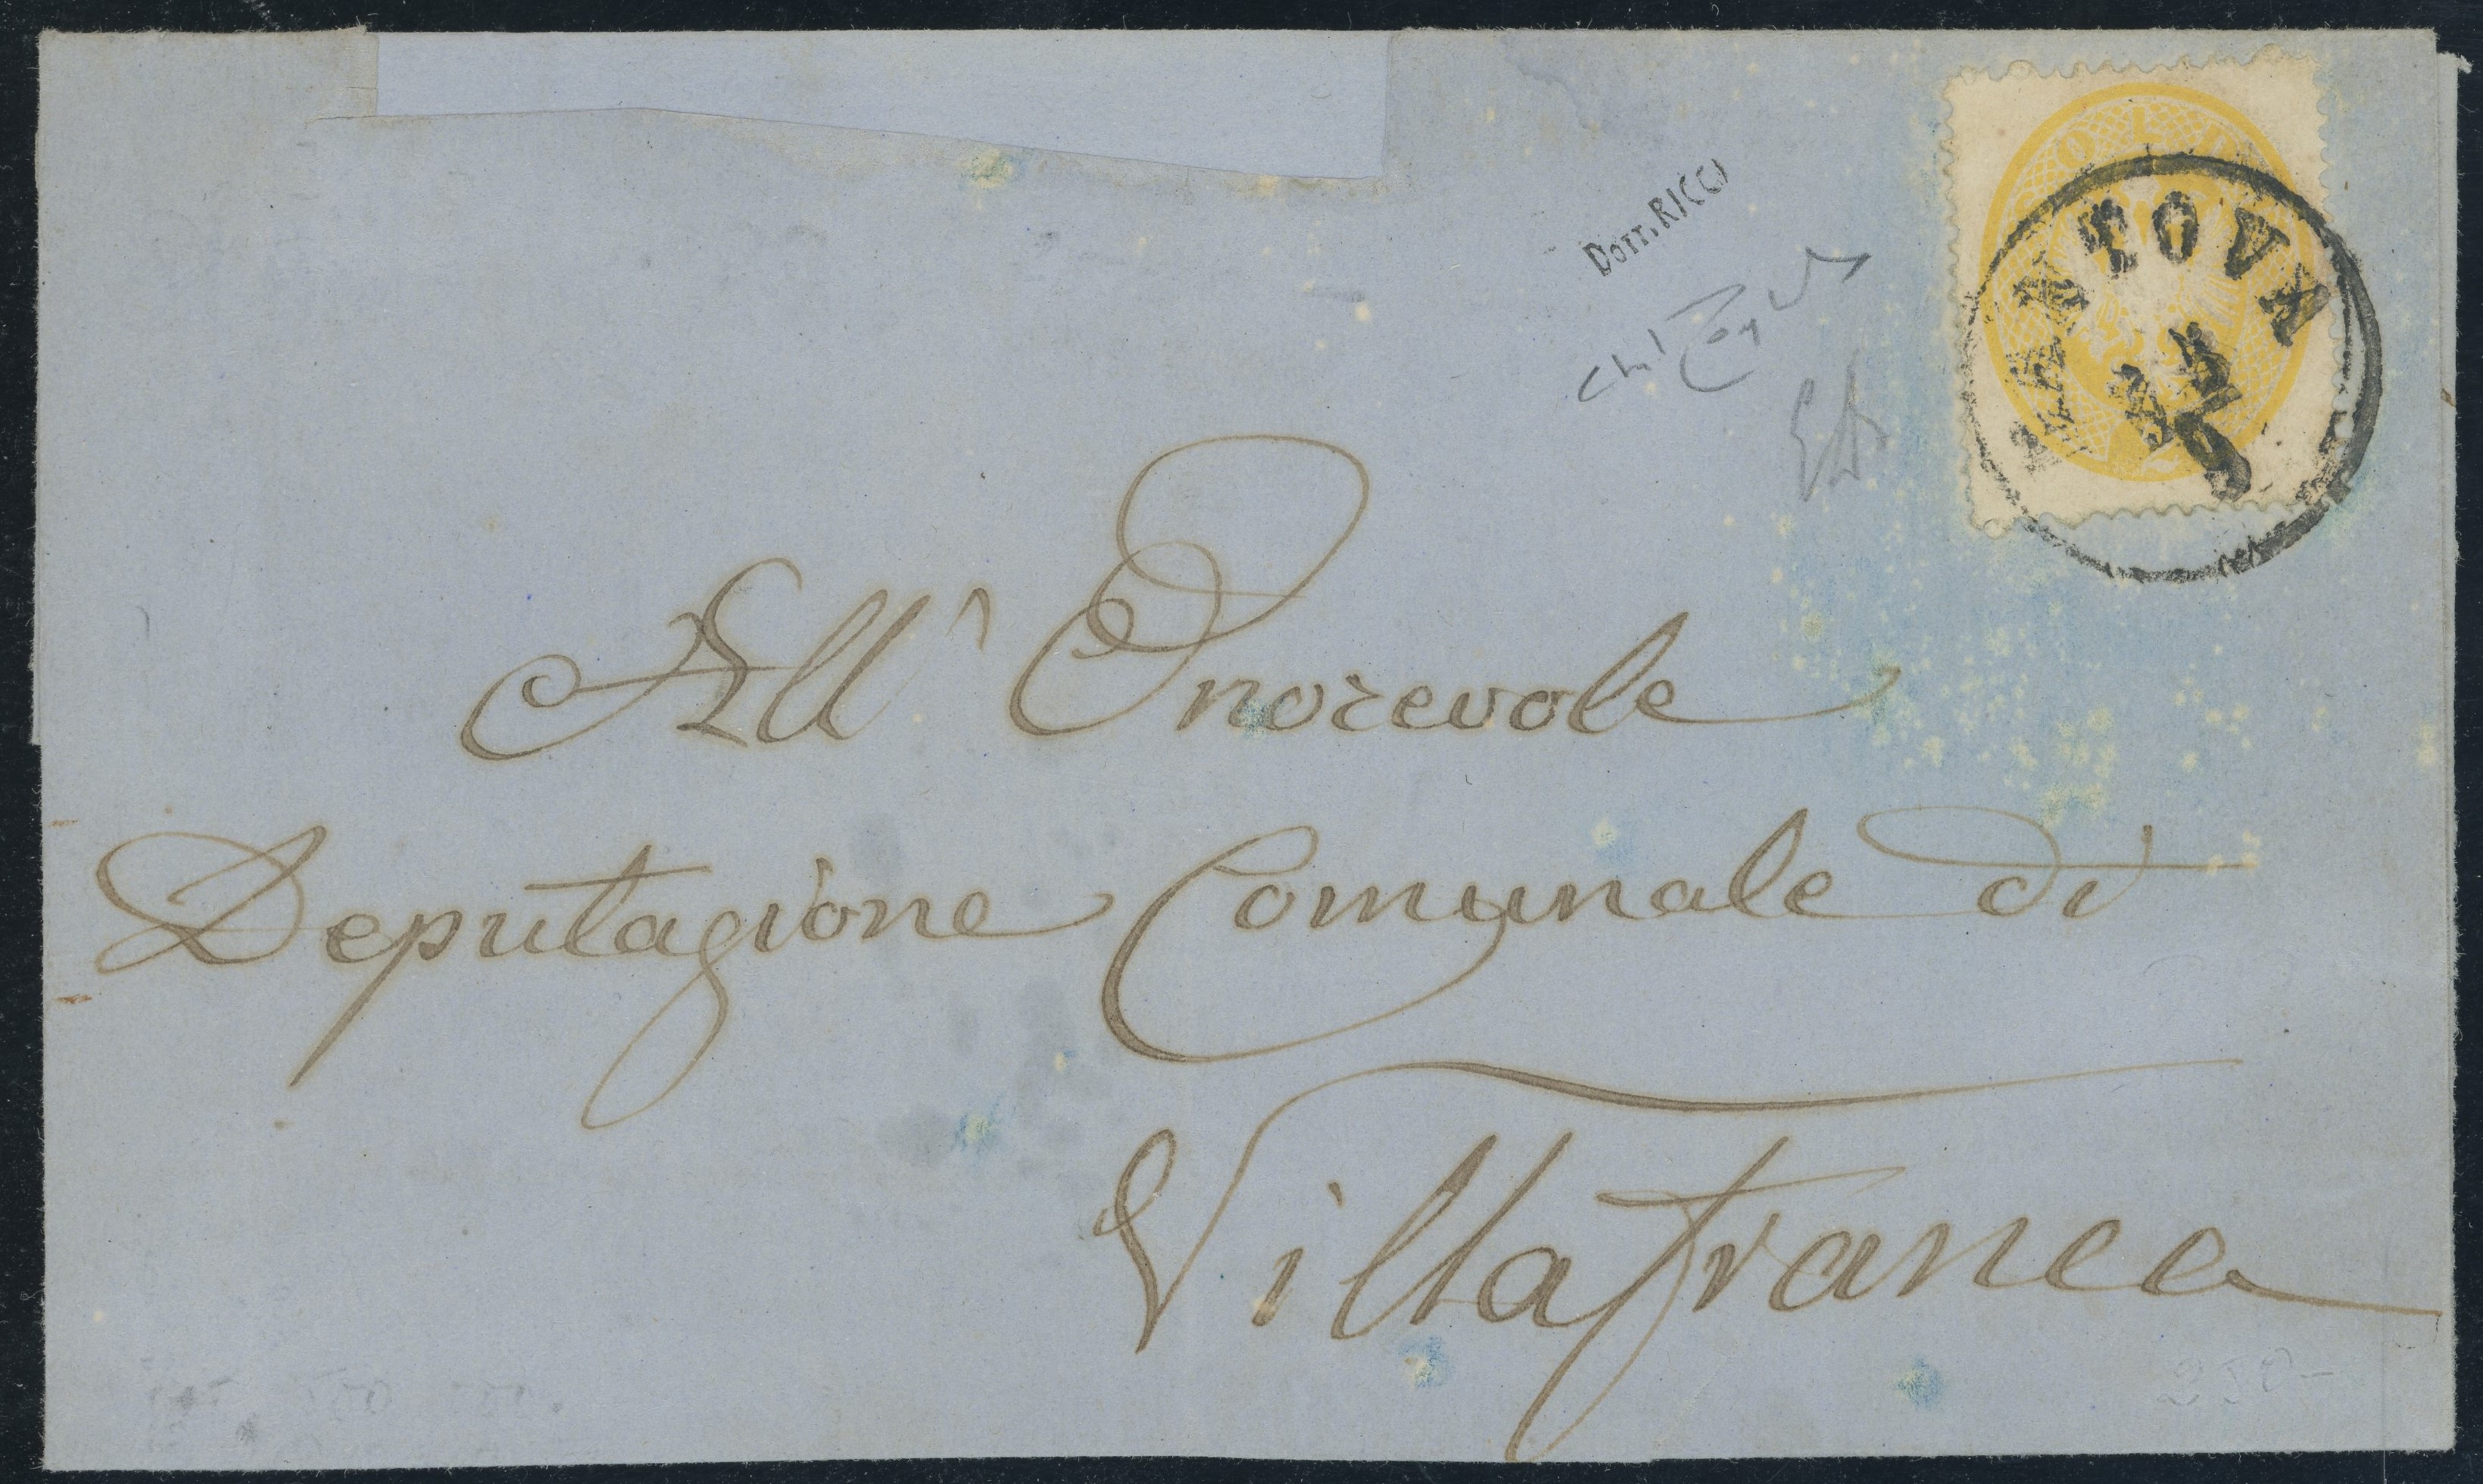 Dott. RICCI
MANTOVA
All' Onorevole
Deputazione Comunale di
Villafranca